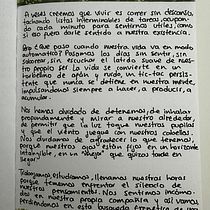 A veces creemos que vivir es correr sin descanso,
tachando listas interminables de tareas, ocupan-
do cada minuto para sentirnos útiles, como
si eso fuera darle sentido a nuestra existencia.
Pero ¿qué pasa cuando nuestra vida va en modo
automático? Pasamos los días sin sentir, sin
saborear, sin escuchar el latido suave de nues-
tro propio ser. La vida se convierte en un
torbellino de afán y ruido, un tic-tac persis-
tente que nunca se detiene en nuestra mente,
impulsándonos siempre a hacer, a producir, a
acumular
Nos hemos olvidado de detenernos, de inhalar
profundamente y mirar a nuestro alrededor,
de permitir que la luz toque nuestras pupilas
y que el viento juegue con nuestros cabellos.
Nos olvidamos de agradecer lo que tenemos,
porque nuestros ojos están fijos en un horizonte
intangible, en un "luego" que quizás tarda en
llegar.
Trabajamos, estudiamos, llenamos nuestras horas
porque tememos enfrentar el silencio de
nuestros pensamientos. Nos sentimos incómo-
en nuestra propia compañía y así vamos
perdiéndonos en esta búsqueda frenética de una